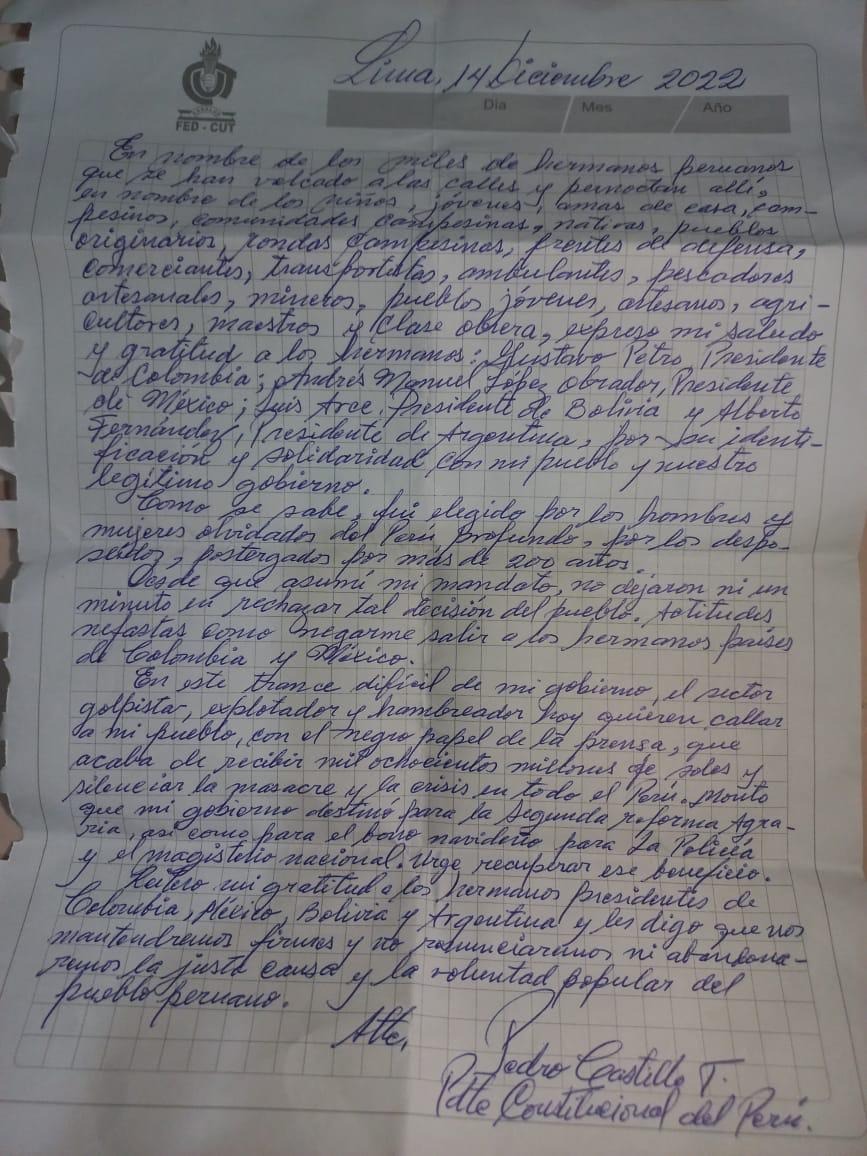 CUT
FED - CUT
Lima, 14 Diciembre 2022
Día Mes Año
En nombre de los miles de hermanos peruanos
que se han volcado a las calles y pernoctan allí,
en nombre de los niños, jóvenes, amas de casa, cam-
pesinos, comunidades campesinas, nativas, pueblos
originarios, rondas campesinas, frentes de defensa,
comerciantes, transportistas, ambulantes, pescadores
artesanales, mineros, pueblos jóvenes, artesanos, agri-
cultores, maestros y clase obrera, expreso mi saludo
y gratitud a los hermanos: Gustavo Petro, Presidente
de Colombia; Andrés Manuel López Obrador, Presidente
de México; Luis Arce, Presidente de Bolivia y Alberto
Fernández, Presidente de Argentina, por su identi-
ficación y solidaridad con mi pueblo y nuestro
legítimo gobierno.
Como se sabe, fui elegido por los hombres y
mujeres olvidados del Perú profundo, por los despo-
seídos, postergados por más de 200 años.
Desde que asumí mi mandato, no dejaron ni un
minuto en rechazar tal decisión del pueblo. Actitudes
nefastas como negarme salir a los hermanos países
de Colombia y México.
En este trance difícil de mi gobierno, el sector
golpista, explotador y hambreador hoy quieren callar
a mi pueblo, con el negro papel de la prensa, que
acaba de recibir mil ochocientos millones de soles y
silenciar la masacre y la crisis en todo el Perú. Monto
que mi gobierno destinó para la Segunda reforma Agra-
ria, así como para el bono navideño para La Policía
y el magisterio nacional. Urge recuperar ese beneficio.
Reitero mi gratitud a los hermanos presidentes de
Colombia, México, Bolivia y Argentina y les digo que nos
mantendremos firmes y no renunciaremos ni abandona-
remos la justa causa y la voluntad popular del
pueblo peruano.
Atte,
Pedro Castillo T.
Pdte Constitucional del Perú.